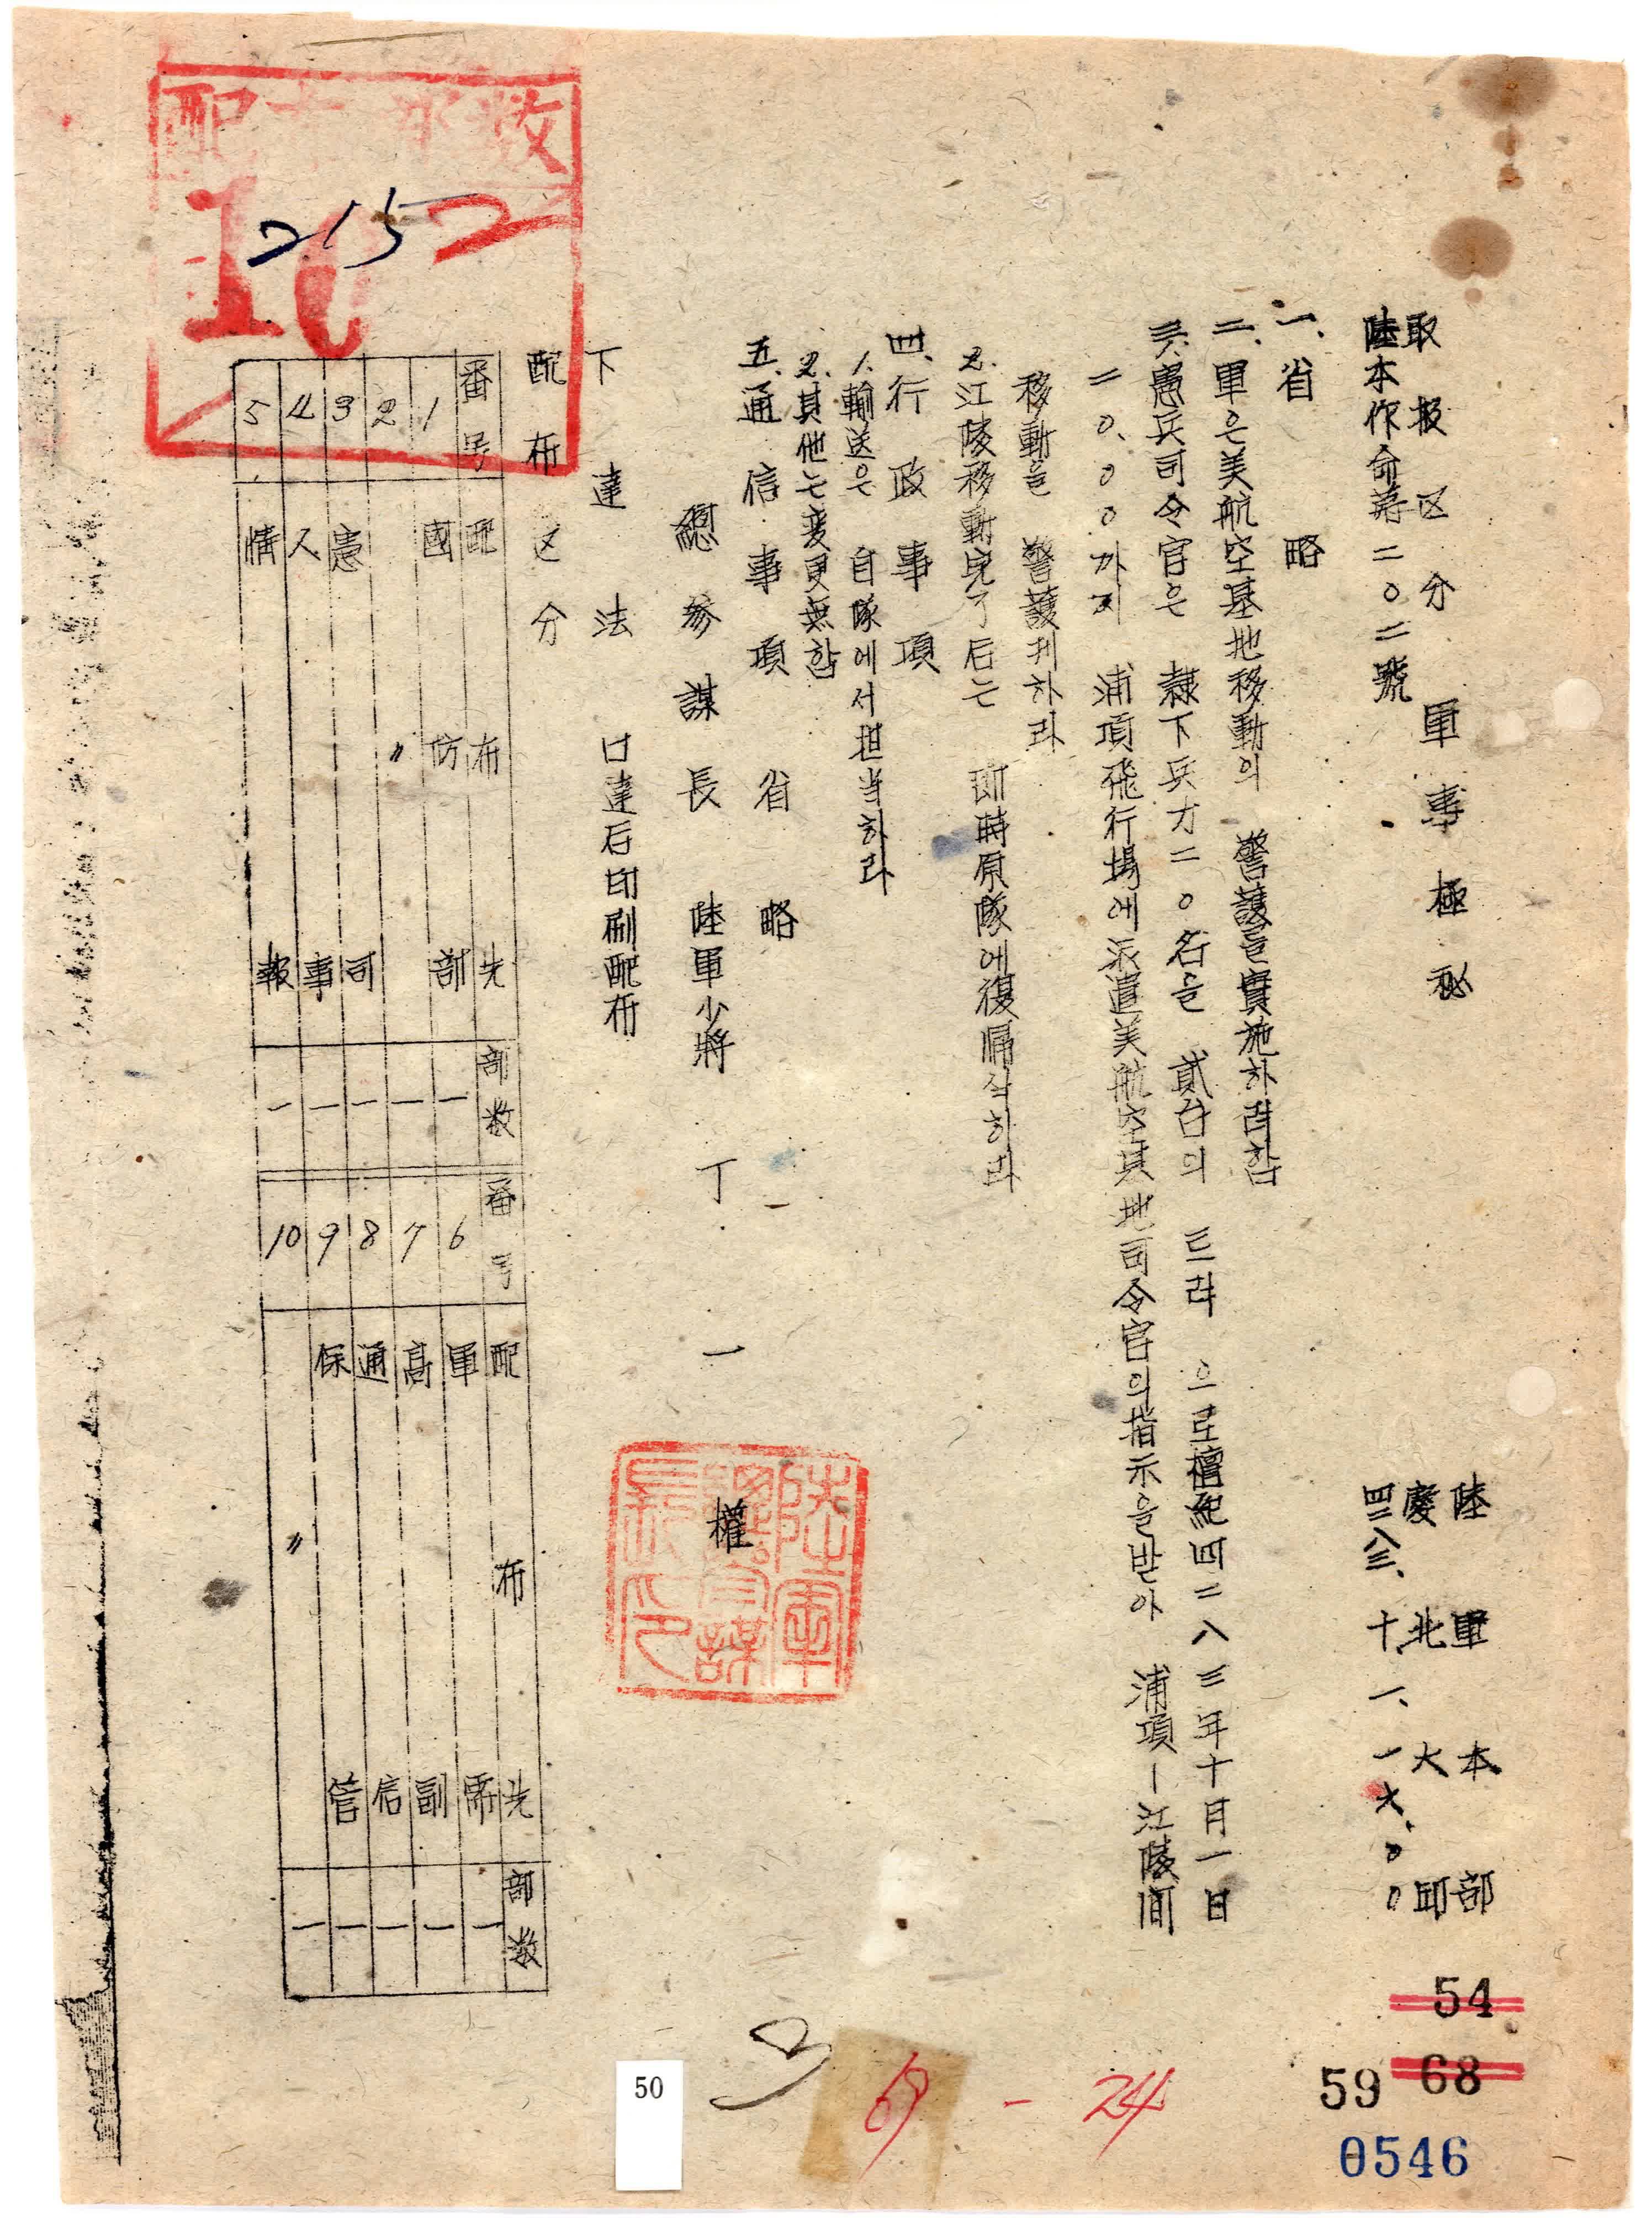 取扱区分 軍事極秘
陸軍本部
慶北大邱
四二八三、十、一、一六、〇〇
陸本作命苐二〇二號
一、省 略
二、軍은美航空基地移動의 警護을實施하랴함
三、憲兵司令官은 隷下兵力二〇名을 貳台의 드락 으로檀紀四二八三年十月一日
二〇、〇〇까지 浦項飛行場에派遣美航空基地司令官의指示을받아 浦項ー江陵间
移動을 警護케하라
2.江陵移動完了后는 即時原隊에復帰식히라
四、行政事項
1.輸送은 自隊에서担当하라
2.其他는変更無함
五、通信事項 省 略
總参謀長 陸軍少將 丁 一 權
陸軍總參謀長印
下達法 口達后印刷配布
配布区分
番号 配布先 部数 番号 配布先 部数
1 國防部 一 6 軍需 一
2 〃 一 7 高副 一
3 憲司 一 8 通信 一
4 人事 一 9 保管 一
5 情報 一 10 〃 一
2152
54
68
59
0546
69 - 24
50